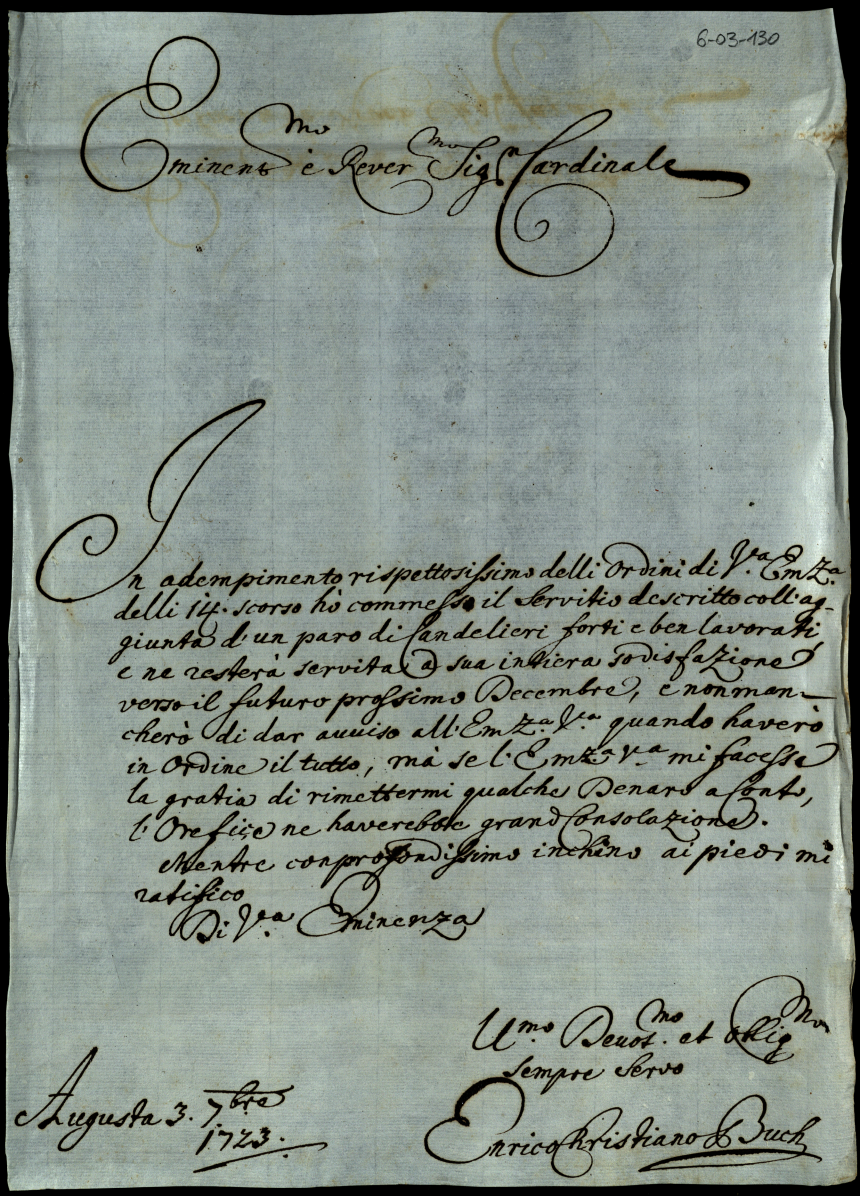 6-03-130
Eminent.mo è Rever.mo Sig.r Cardinale
In adempimento rispettosissimo delli Ordini di V.ra Emza.
delli 14. scorso hò commesso il Servitio descritto coll'ag-
giunta d'un paro di Candelieri forti e ben lavorati,
e ne resterà servita @ sua intiera sodisfazione
verso il futuro prossimo Decembre, e non man-
cherò di dar auuiso all'Emza. V.ra quando haverò
in Ordine il tutto, mà se l'Emza. V.ra mi facesse
la gratia di rimettermi qualche Denaro a Conto,
l'Orefice ne haverebbe grand Consolazione.
Mentre con profondissimo inchino ai piedi mi
ratifico
Di V.ra Eminenza
U.mo Deuot.mo et Oblig.mo
sempre Servo
Augusta 3. 7bre
1723.
Enrico Christiano Buch